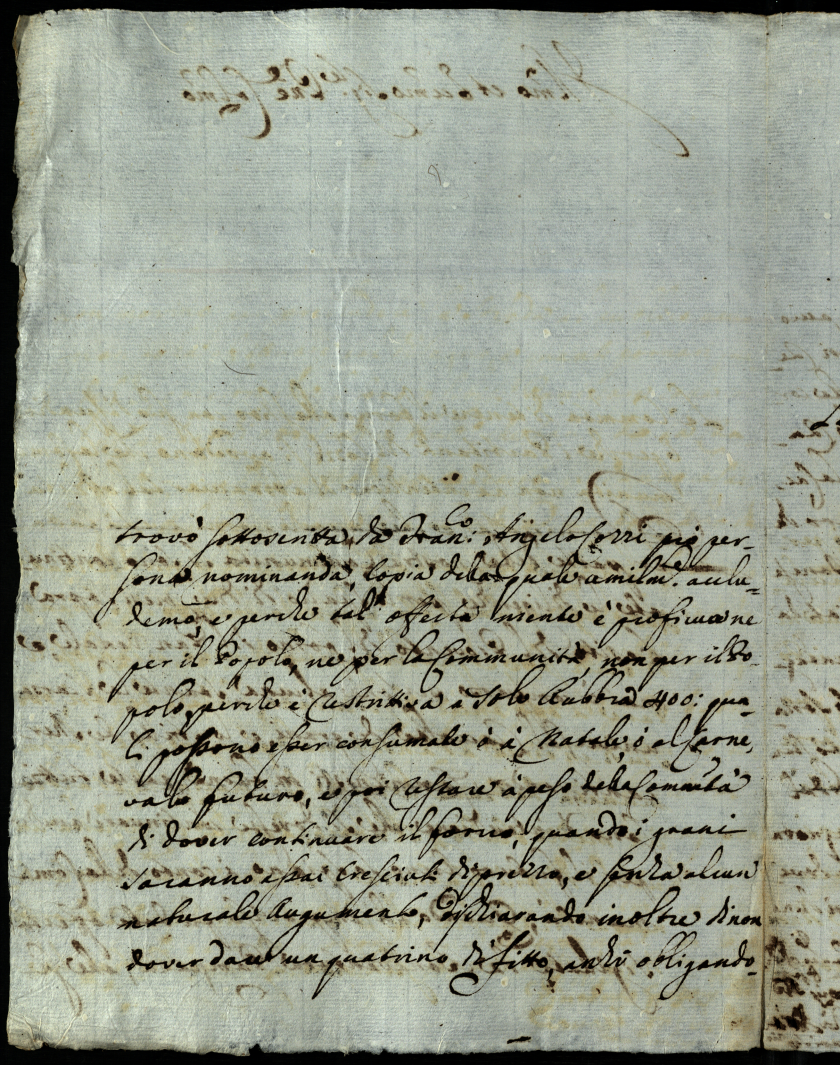 trovò sottoscritta da Fran:co Angelo Sorri p̄ p̄ per-
sona nominanda, Copia della quale umilm:e acclu-
demo, e perche tal' offerta niente è proficua ne
per il Popolo, ne per la Communità, non per il Po-
polo, perche è restrittiva a sole Rubbia 400: qua-
li possono esser consumate ò à Natale, ò al Carne,
vale futuro, e poi restare à peso della Commtà
di dover continuare il forno, quando i grani
saranno assai cresciuti di prezzo, e senza alcun
naturale Augumento, dischiarando inoltre di non
dover dare un quatrino di fitto, anzi obligando-